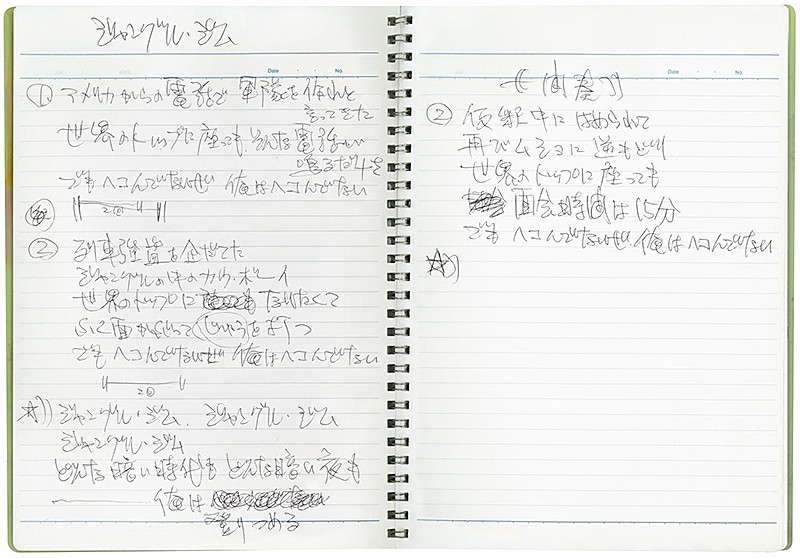 ジャングル・ジム
Date No.
① アメリカからの電話で 軍隊を作れと
言ってきた
世界のトップに座っても そんな電話が
鳴るだけ
でも ヘコんでないぜ 俺はヘコんでない
2回
② 列車強盗を企だてた
ジャングルの中のカウ・ボーイ
世界のトップに なりたくて
でも ヘコんでないぜ 俺はヘコんでない
2回
☆)) ジャングル・ジム、ジャングル・ジム
ジャングル・ジム
どんな暗い時代も どんな暗い夜も
俺は
登りつめる
Date No.
《間奏》
② 仮釈中に はめられて
再びムショに逆もどり
世界のトップに座っても
面会時間は15分
でも ヘコんでないぜ 俺はヘコんでない
☆))